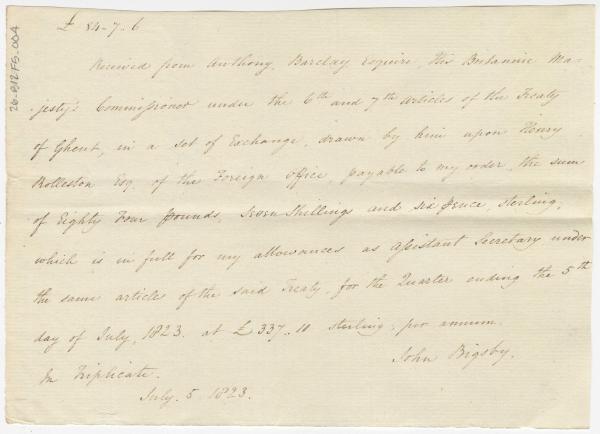 £ 84-7-6
Received from Anthony, Barclay Esquire, His Britannic Ma-
-jesty's Commissioner under the 6th and 7th Articles of the Treaty
of Ghent, in a set of Exchange, drawn by him upon Henry
Rolleston Esq. of the Foreign Office, payable to my order, the sum
of Eighty Four pounds, seven Shillings and six pence, sterling,
which is in full for my allowances as Assistant Secretary under
the same articles of the said Treaty, for the Quarter ending the 5th
day of July, 1823. at £ 337.10 sterling, per annum.
John Bigsby.
In Triplicate.
July. 5 1823.